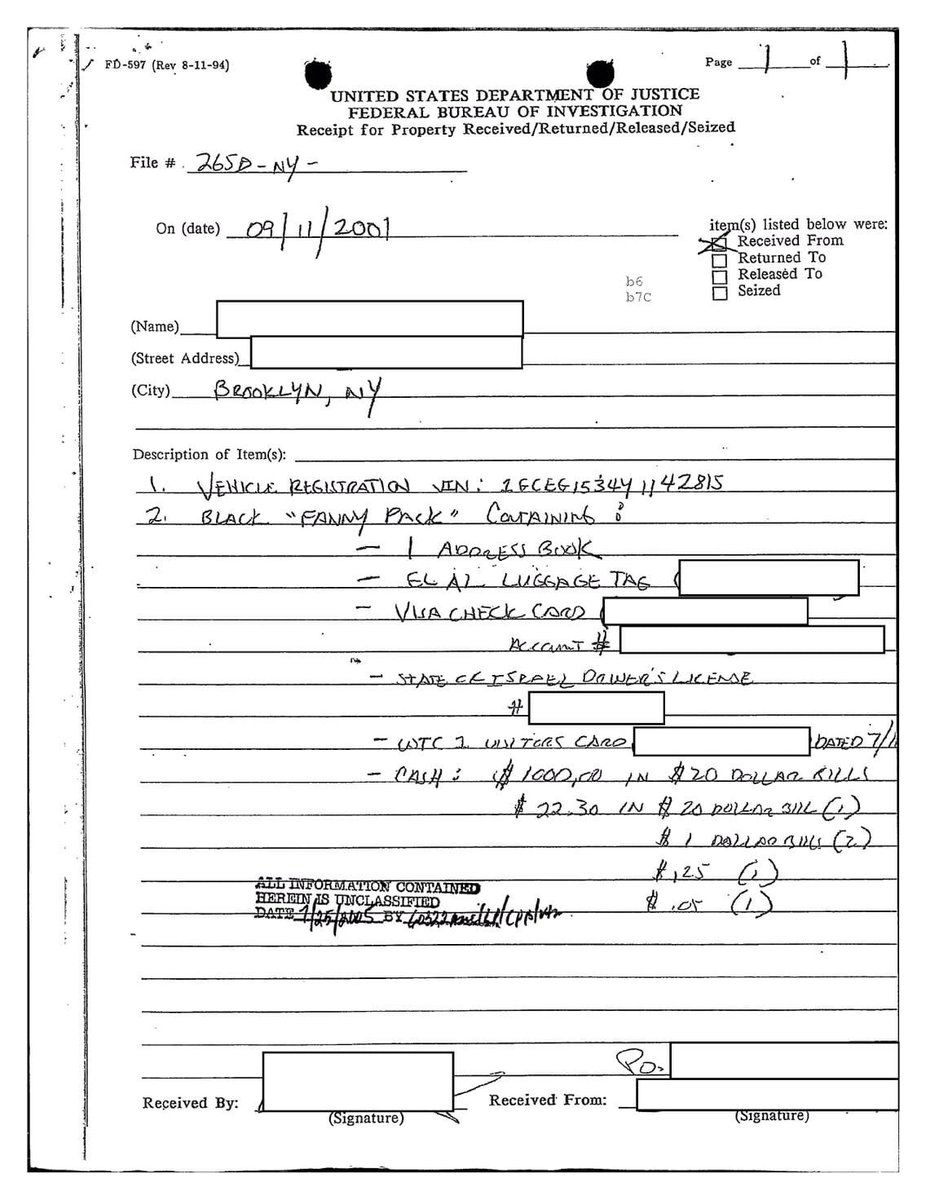 FD-597 (Rev 8-11-94)
Page 1 of 1
UNITED STATES DEPARTMENT OF JUSTICE
FEDERAL BUREAU OF INVESTIGATION
Receipt for Property Received/Returned/Released/Seized
File # 265D-NY-
On (date) 09/11/2001
item(s) listed below were:
Received From
Returned To
Released To
Seized
b6
b7C
(Name)
(Street Address)
(City) BROOKLYN, NY
Description of Item(s):
1. VEHICLE REGISTRATION VIN: 1GCEG15341142815
2. BLACK "FANNY PACK" CONTAINING:
- 1 ADDRESS BOOK
- EL AL LUGGAGE TAG (
- VISA CHECK CARD (
ACCOUNT #
- STATE OF ISRAEL DRIVER'S LICENSE
#
- WTC 2 VISITORS CARD DATED 7/
- CASH: $1000.00 IN $20 DOLLAR BILLS
$22.30 IN $20 DOLLAR BILL (1)
$1 DOLLAR BILLS (2)
$.25 (1)
$.05 (1)
ALL INFORMATION CONTAINED
HEREIN IS UNCLASSIFIED
DATE 7/25/2005 BY
PO.
Received By:
(Signature)
Received From:
(Signature)